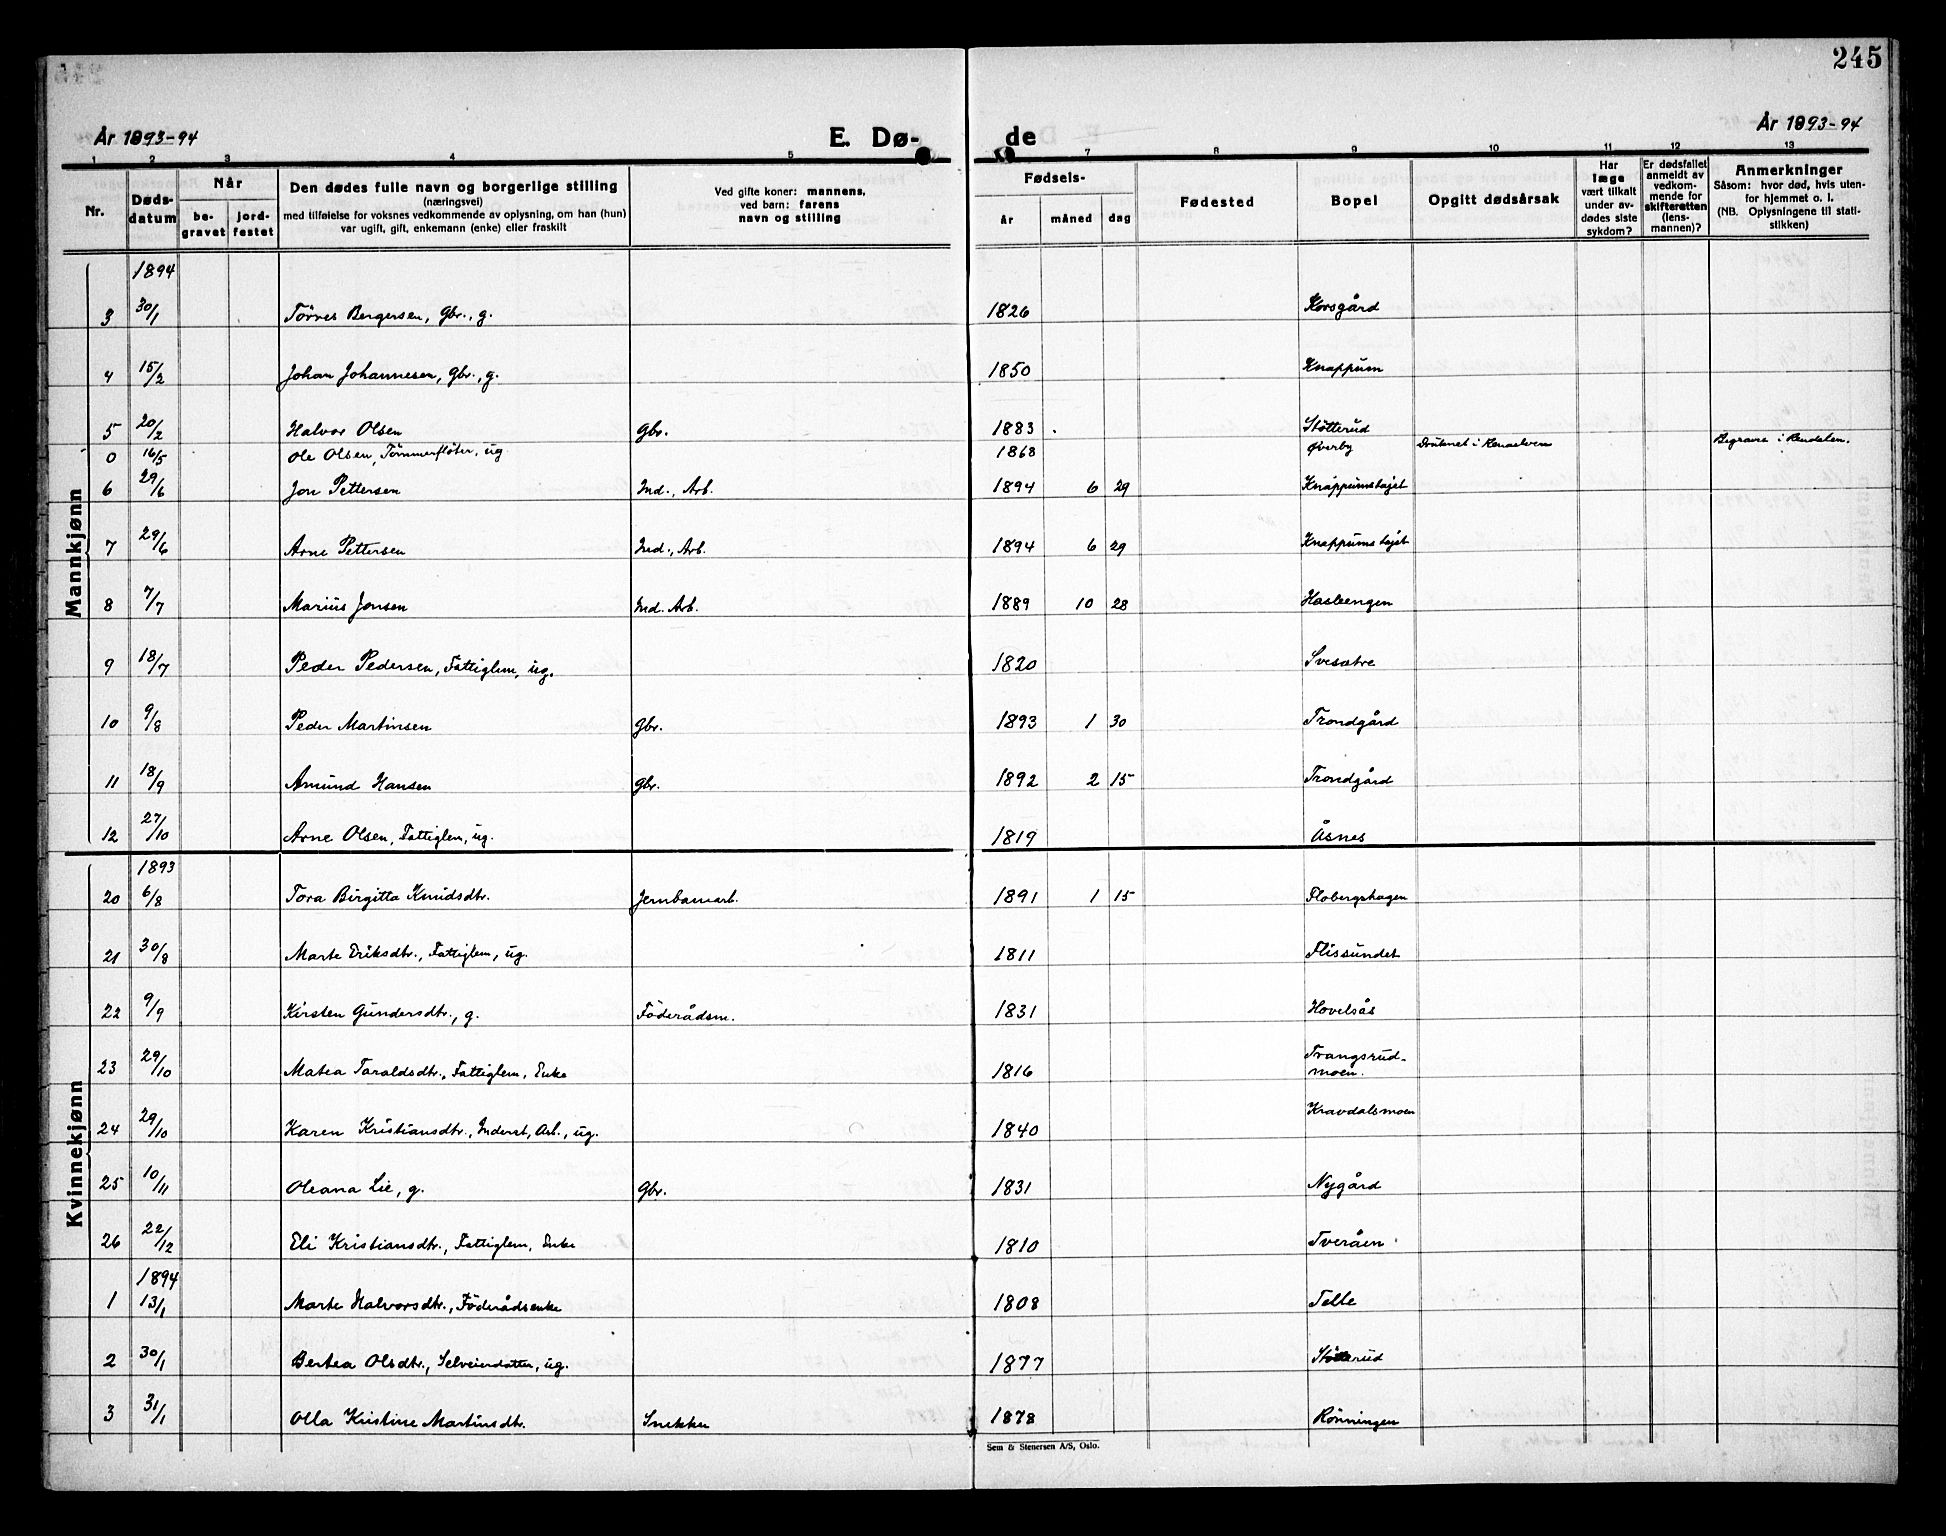 245
År 1893-94
E. Dø-
de
År 1893-94
1 2 3 4 5 7 8 9 10 11 12 13
Nr.
Døds-
datum
Når
be-
gravet
jord-
festet
Den dødes fulle navn og borgerlige stilling
(næringsvei)
med tilføielse for voksnes vedkommende av oplysning, om han (hun)
var ugift, gift, enkemann (enke) eller fraskilt
Ved gifte koner: mannens,
ved barn: farens
navn og stilling
Fødsels-
år måned dag
Fødested
Bopel
Opgitt dødsårsak
Har
læge
vært tilkalt
under av-
dødes siste
sykdom?
Er dødsfallet
anmeldt av
vedkom-
mende for
skifteretten
(lens-
mannen)?
Anmerkninger
Såsom: hvor død, hvis uten-
for hjemmet o. l.
(NB. Oplysningene til stati-
stikken)
Mannkjønn
1894
3 30/1 Törres Bergersen, Gbr., g. 1826 Korsgård
4 15/2 Johan Johannesen, Gbr., g. 1850 Knappum
5 20/2 Halvor Olsen Gbr. 1883 Støtterud
0 16/5 Ole Olsen, Tömmerflöter, ug. 1868 Øverby Druknet i Renaelven Begravet i Rendalen.
6 29/6 Jon Pettersen Ind., Arb. 1894 6 29 Knappumstajet
7 29/6 Arne Pettersen Ind., Arb. 1894 6 29 Knappumstajet
8 7/7 Marius Jonsen Ind. Arb. 1889 10 28 Hasleengen
9 18/7 Peder Pedersen, Fattiglem, ug. 1820 Svesætre
10 9/8 Peder Martinsen Gbr. 1893 1 30 Trondgård
11 18/9 Amund Hansen Gbr. 1892 2 15 Trondgård
12 27/10 Arne Olsen, Fattiglem, ug. 1819 Åsnes
Kvinnekjønn
1893
20 6/8 Tora Birgitta Knudsdtr. Jernbanearb. 1891 1 15 Flobergshagen
21 30/8 Marte Eriksdtr., Fattiglem, ug. 1811 Flissundet
22 9/9 Kirsten Gundersdtr., g. Föderådsm. 1831 Hovelsås
23 29/10 Matea Taraldsdtr., Fattiglem, Enke 1816 Trangsrud-
moen.
24 29/10 Karen Kristiansdtr., Inderst, Arb., ug. 1840 Kravdalsmoen
25 10/11 Oleana Lie, g. Gbr. 1831 Nygård
26 22/12 Eli Kristiansdtr., Fattiglem, Enke 1810 Tveråen
1894
1 13/1 Marte Halvorsdtr., Föderådsenke 1808 Telle
2 30/1 Bertea Olsdtr., Selveierdatter, ug. 1877 Støtterud
3 31/1 Olla Kristine Martinsdtr. Snekker 1878 Rönningen
Sem & Stenersen A/S, Oslo.